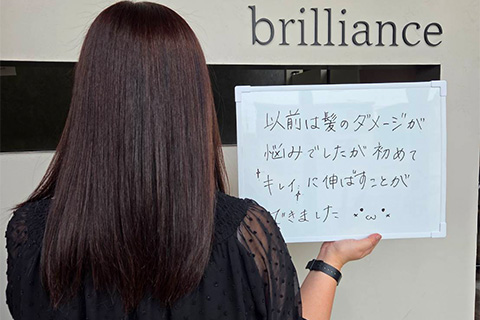 brilliance
以前は髪のダメージが
悩みでしたが初めて
"キレイ"に伸ばすことが
できました *•ω•*